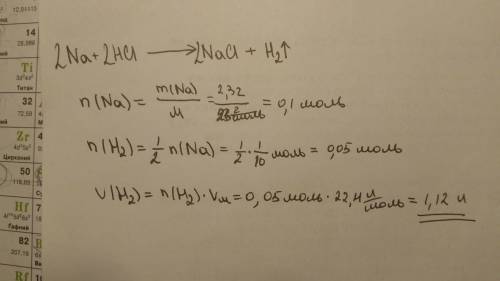 12,01115
14
28,086
Ti
3d²4s²
Титан
32
72,59
Zr
4d²5s²
Цирконий
50
118,69
Hf
4f¹⁴5d²6s²
Гафний
82
207,19
Rf
2Na+2HCl ⟶ 2NaCl + H₂↑
n(Na) = m(Na)/M = = 0,1 моль
n(H₂) = 1/2 n(Na) = 1/2 · 1/10 моль = 0,05 моль
V(H₂) = n(H₂)·Vм = 0,05 моль · 22,4 л/моль = 1,12 л